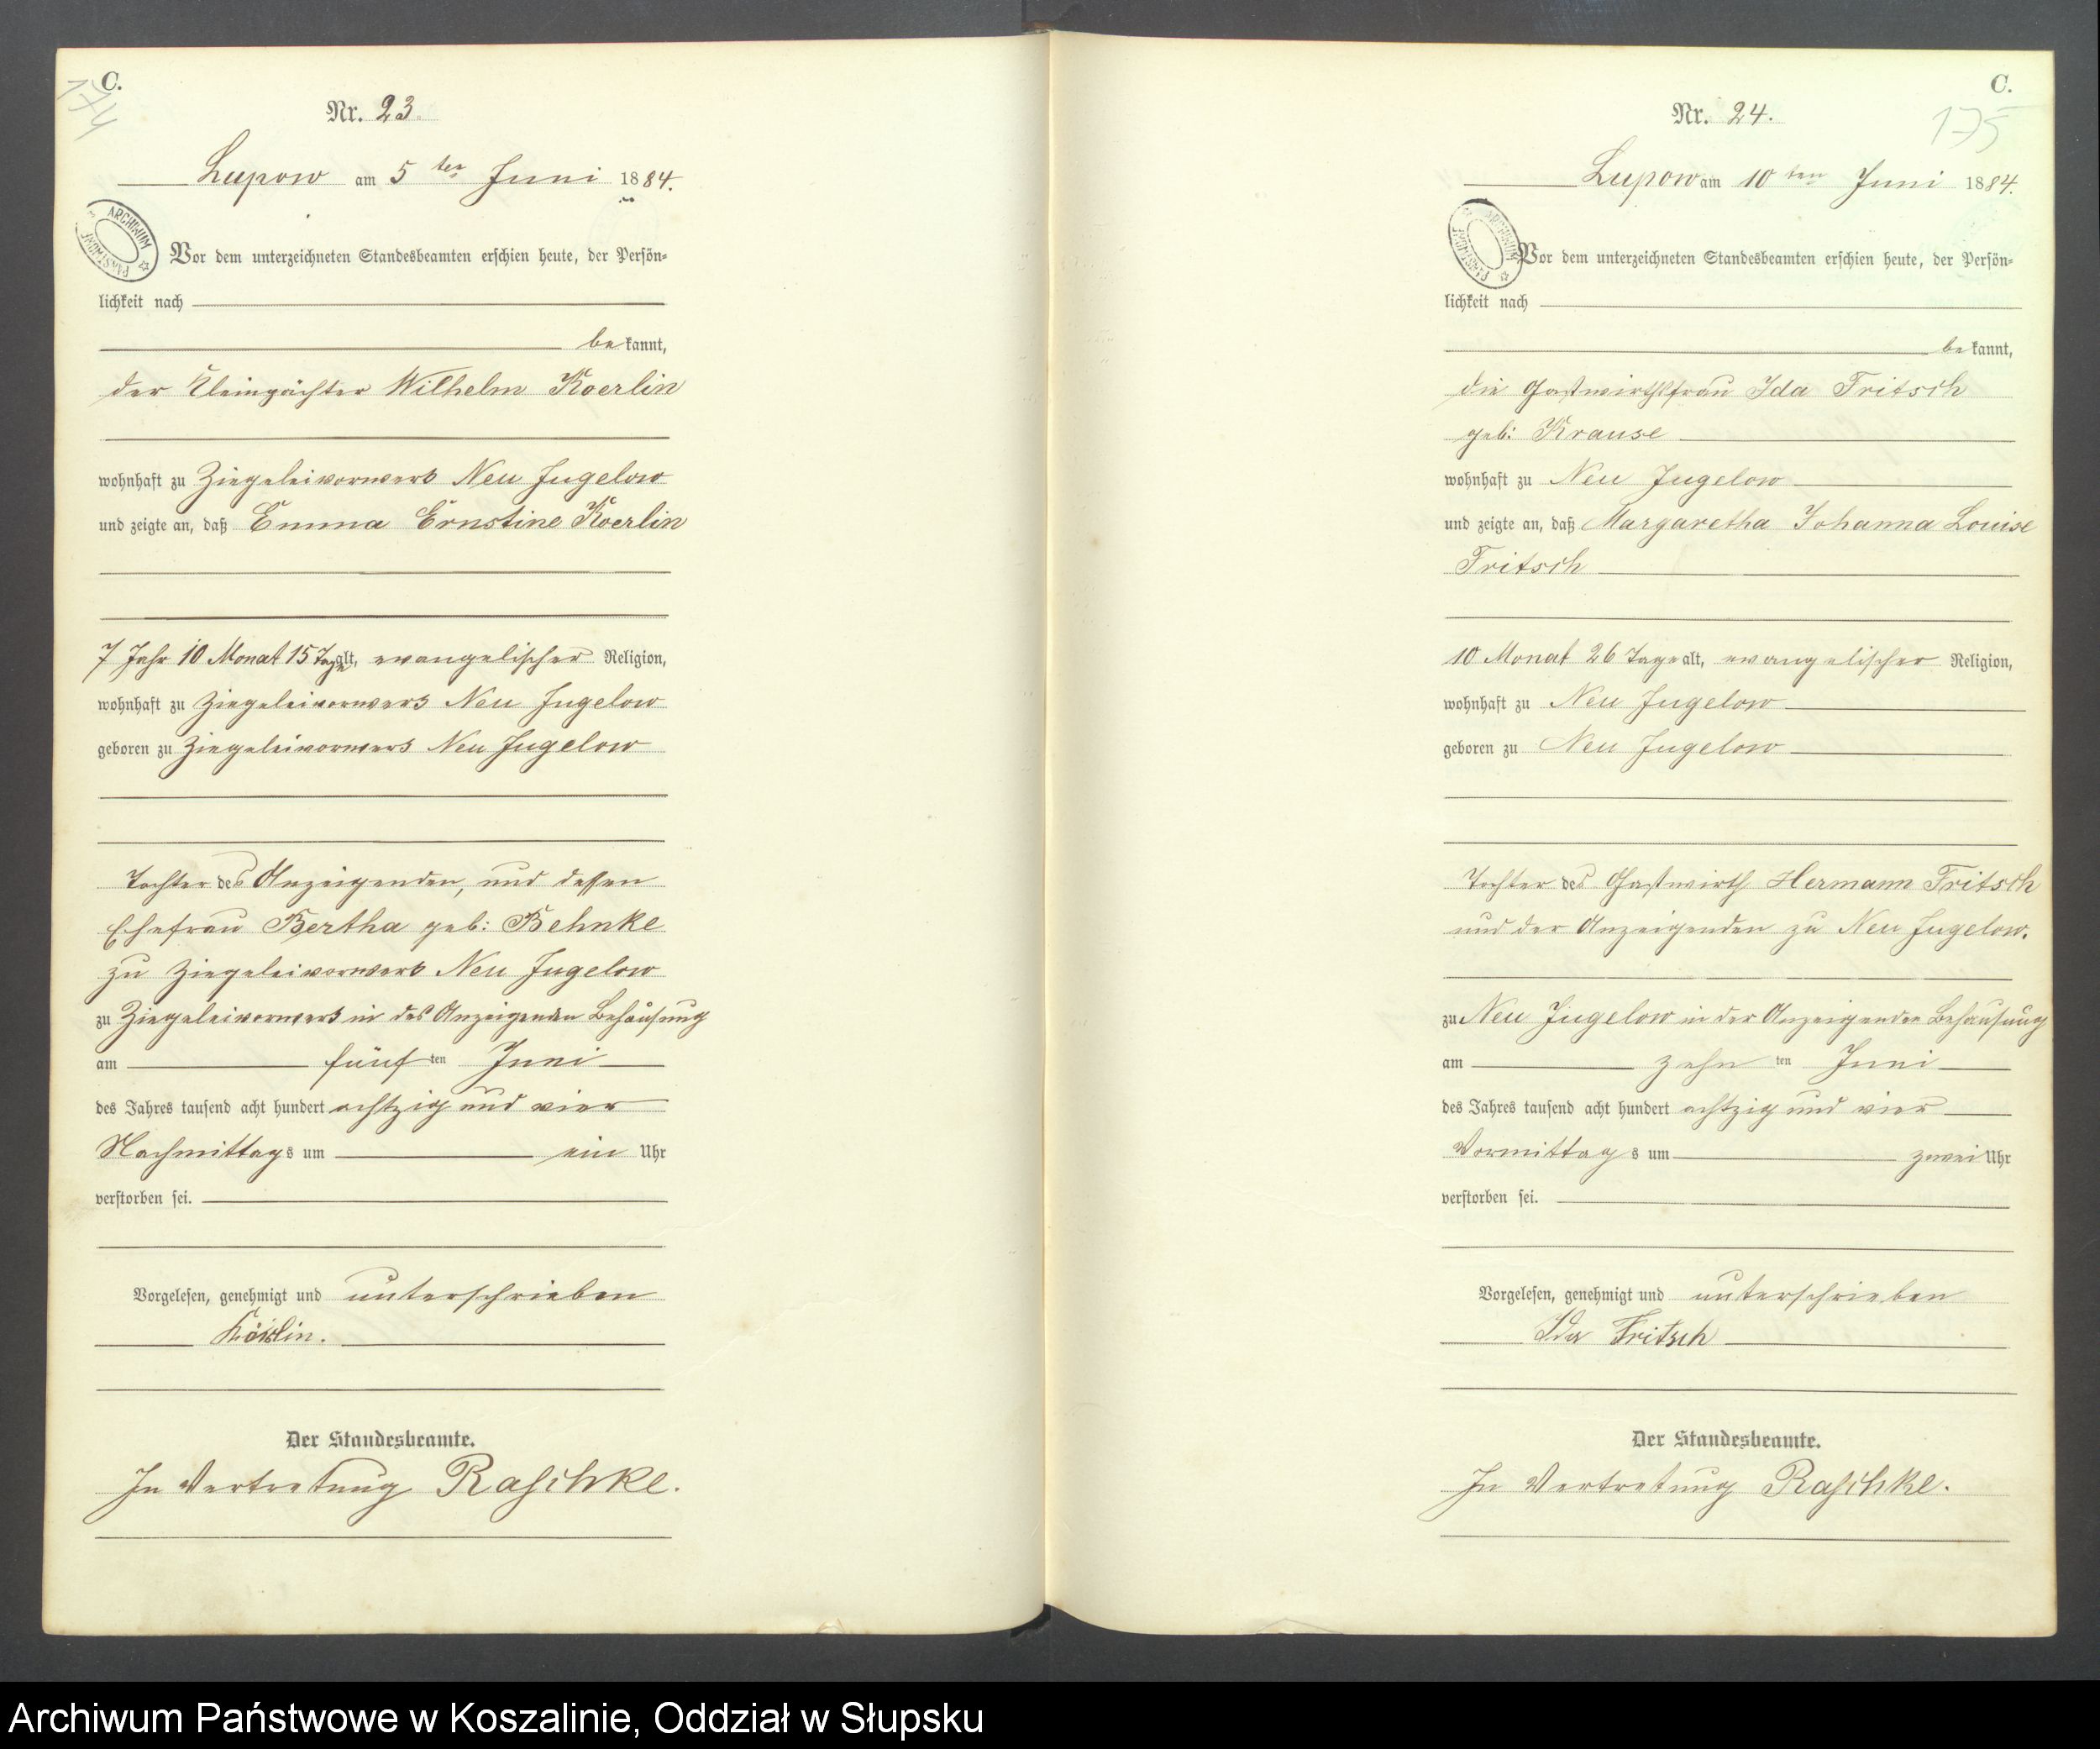 C.
174
Nr. 23.
Lupow am 5 ten Juni 1884.
ARCHIWUM PAŃSTWOWE
Vor dem unterzeichneten Standesbeamten erschien heute, der Persön-
lichkeit nach
bekannt,
der Kleinpächter Wilhelm Koerlin
wohnhaft zu Ziegeleivorwerk Neu Jugelow
und zeigte an, daß Emma Ernstine Koerlin
7 Jahr 10 Monat 15 Tage alt, evangelischer Religion,
wohnhaft zu Ziegeleivorwerk Neu Jugelow
geboren zu Ziegeleivorwerk Neu Jugelow
Tochter des Anzeigenden, und dessen
Ehefrau Bertha geb: Behnke
zu Ziegeleivorwerk Neu Jugelow
zu Ziegeleivorwerk in des Anzeigenden Behausung
am fünften Juni
des Jahres tausend acht hundert achtzig und vier
Nachmittags um ein Uhr
verstorben sei.
Vorgelesen, genehmigt und unterschrieben
Der Standesbeamte.
In Vertretung Raschke.
C.
175
Nr. 24.
Lupow am 10 ten Juni 1884.
ARCHIWUM PAŃSTWOWE
Vor dem unterzeichneten Standesbeamten erschien heute, der Persön-
lichkeit nach
bekannt,
die Gastwirthsfrau Ida Fritsch
geb: Krause
wohnhaft zu Neu Jugelow
und zeigte an, daß Margaretha Johanna Louise
Fritsch
10 Monat 26 Tage alt, evangelischer Religion,
wohnhaft zu Neu Jugelow
geboren zu Neu Jugelow
Tochter des Gastwirth Hermann Fritsch
und der Anzeigenden zu Neu Jugelow.
zu Neu Jugelow in der Anzeigenden Behausung
am zehnten Juni
des Jahres tausend acht hundert achtzig und vier
Vormittags um zwei Uhr
verstorben sei.
Vorgelesen, genehmigt und unterschrieben
Ida Fritsch
Der Standesbeamte.
In Vertretung Raschke.
Archiwum Państwowe w Koszalinie, Oddział w Słupsku